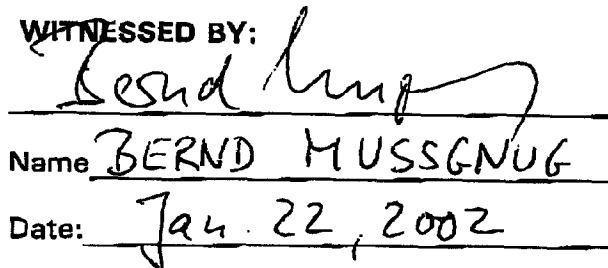 WITNESSED BY:
Bernd
Name BERND MUSSGNUG
Date: Jan. 22, 2002